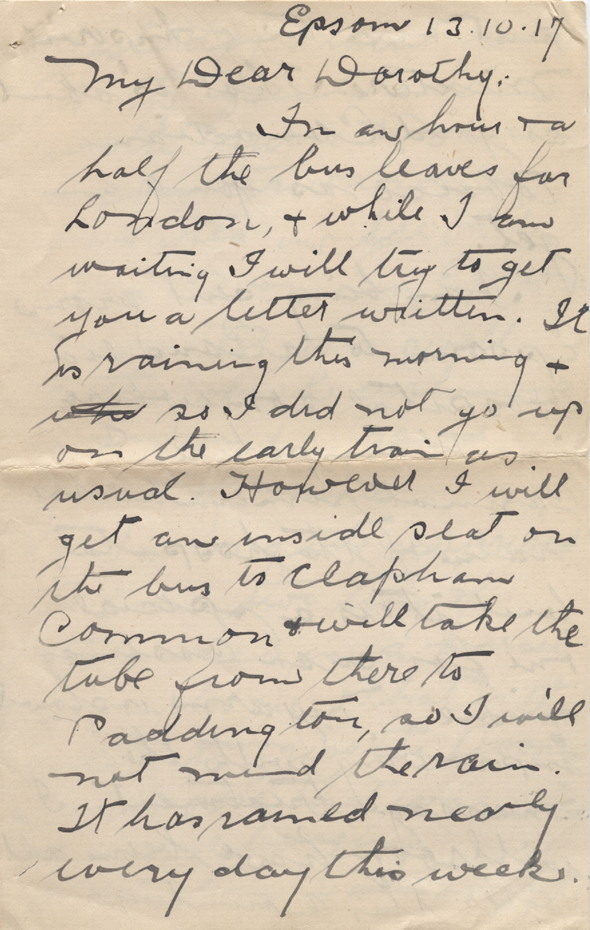 Epsom 13.10.17
My Dear Dorothy:
In an hour + a
half the bus leaves for
London, + while I am
waiting I will try to get
you a letter written. It
is raining this morning +
so I did not go up
on the early train as
usual. However I will
get an inside seat on
the bus to Clapham
Common & will take the
tube from there to
Paddington, so I will
not mind the rain.
It has rained nearly
every day this week.